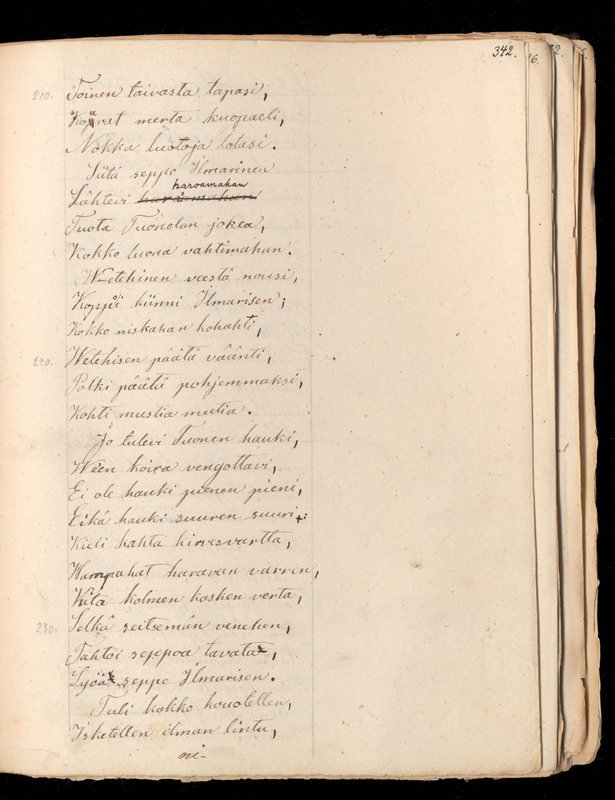 342.
210. Toinen taivasta tapasi,
Kojrat merta kuopaeli,
Nokka luotoja lotasi.
Siitä seppo Ilmarinen
haroamahan
Lähtevi haràmahan
Tuota Tuonelan jokea,
Kokko luona vahtimahan.
Wetehinen veestä nousi,
Koppoi kiinni Ilmarisen;
Kokko niskahan kohahti,
220. Wetehisen päätä väänti,
Polki päätä pohjemmaksi,
Kohti mustia mutia.
Jo tulevi Tuonen hauki,
Ween koira vengottavi,
Ei ole hauki pienen pieni,
Eikä hauki suuren suuri:
Kieli kahta kirvesvartta,
Hampahat haravan varren,
Kita kolmen kosken verta,
230. Selkä seitsemän venehen,
Tahtoi seppoa tavata,
Lyöä seppo Ilmarisen.
Tuli kokko kouotellen,
Isketellen ilman lintu,
ni-